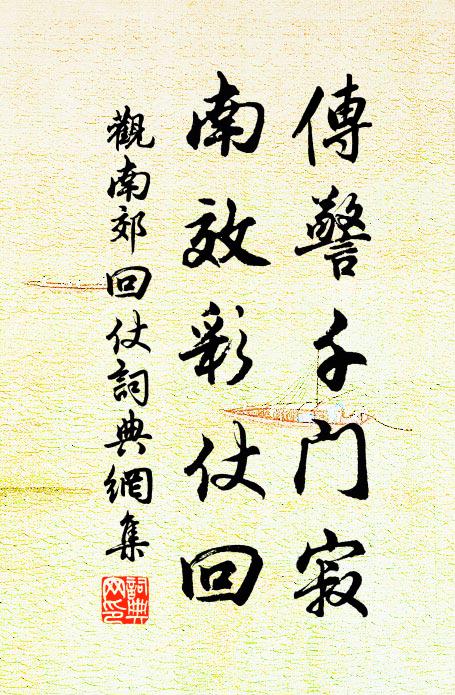 傳警千門寂
南效彩仗回
觀南郊回仗詞典網集
詞典
网印